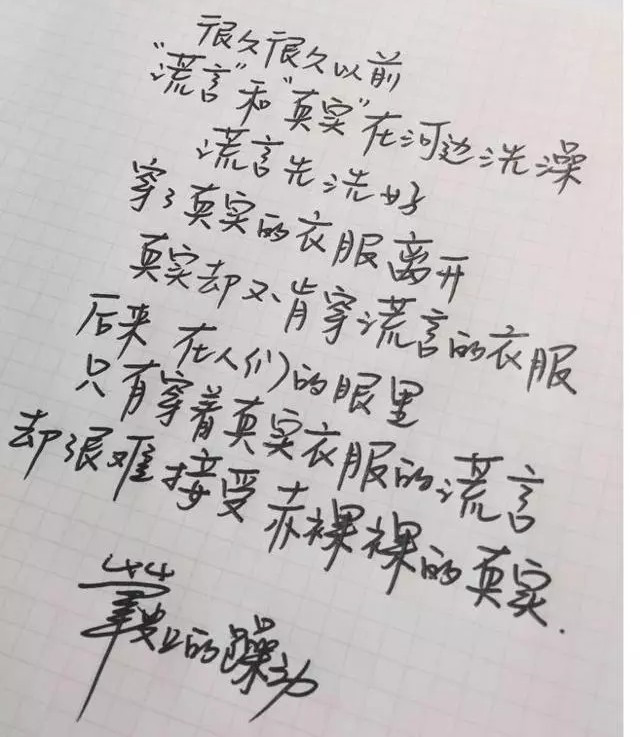 很久很久以前
"谎言"和"真实"在河边洗澡
谎言先洗好
穿了真实的衣服离开
真实却不肯穿谎言的衣服
后来 在人们的眼里
只有穿着真实衣服的谎言
却很难接受赤裸裸的真实.
的躁动